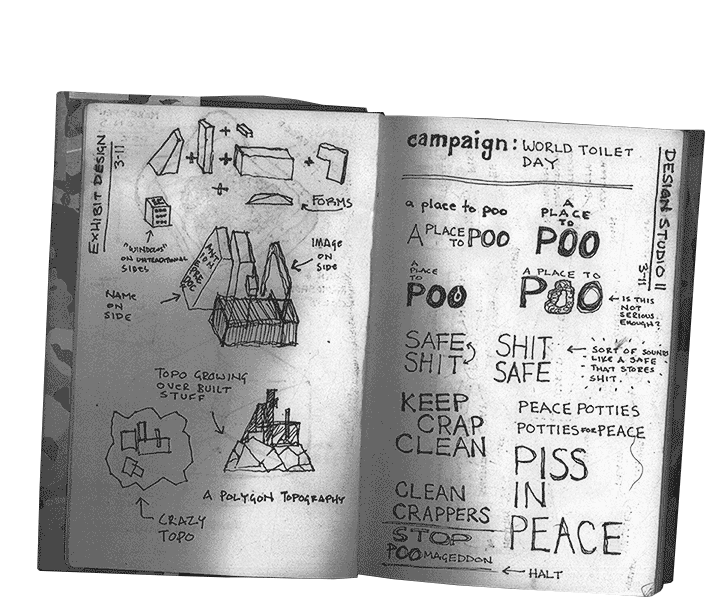 EXHIBIT DESIGN
3-11
+
+
+
+
+
FORMS
"WINDOWS"
ON UNTRADITIONAL
SIDES
IMAGE
ON
SIDE
NAME
ON
SIDE
TOPO GROWING
OVER BUILT
STUFF
A POLYGON TOPOGRAPHY
CRAZY
TOPO
campaign: WORLD TOILET
DAY
DESIGN STUDIO II
3-11
a place to poo
A PLACE
TO POO
A
PLACE
TO
POO
A
PLACE
TO
POO
A PLACE TO
POO
IS THIS
NOT
SERIOUS
ENOUGH?
SAFE
SHIT
SHIT
SAFE
SORT OF SOUNDS
LIKE A SAFE
THAT STORES
SHIT.
KEEP
CRAP
CLEAN
PEACE POTTIES
POTTIES FOR PEACE
PISS
IN
PEACE
CLEAN
CRAPPERS
STOP
POOMAGEDDON
HALT